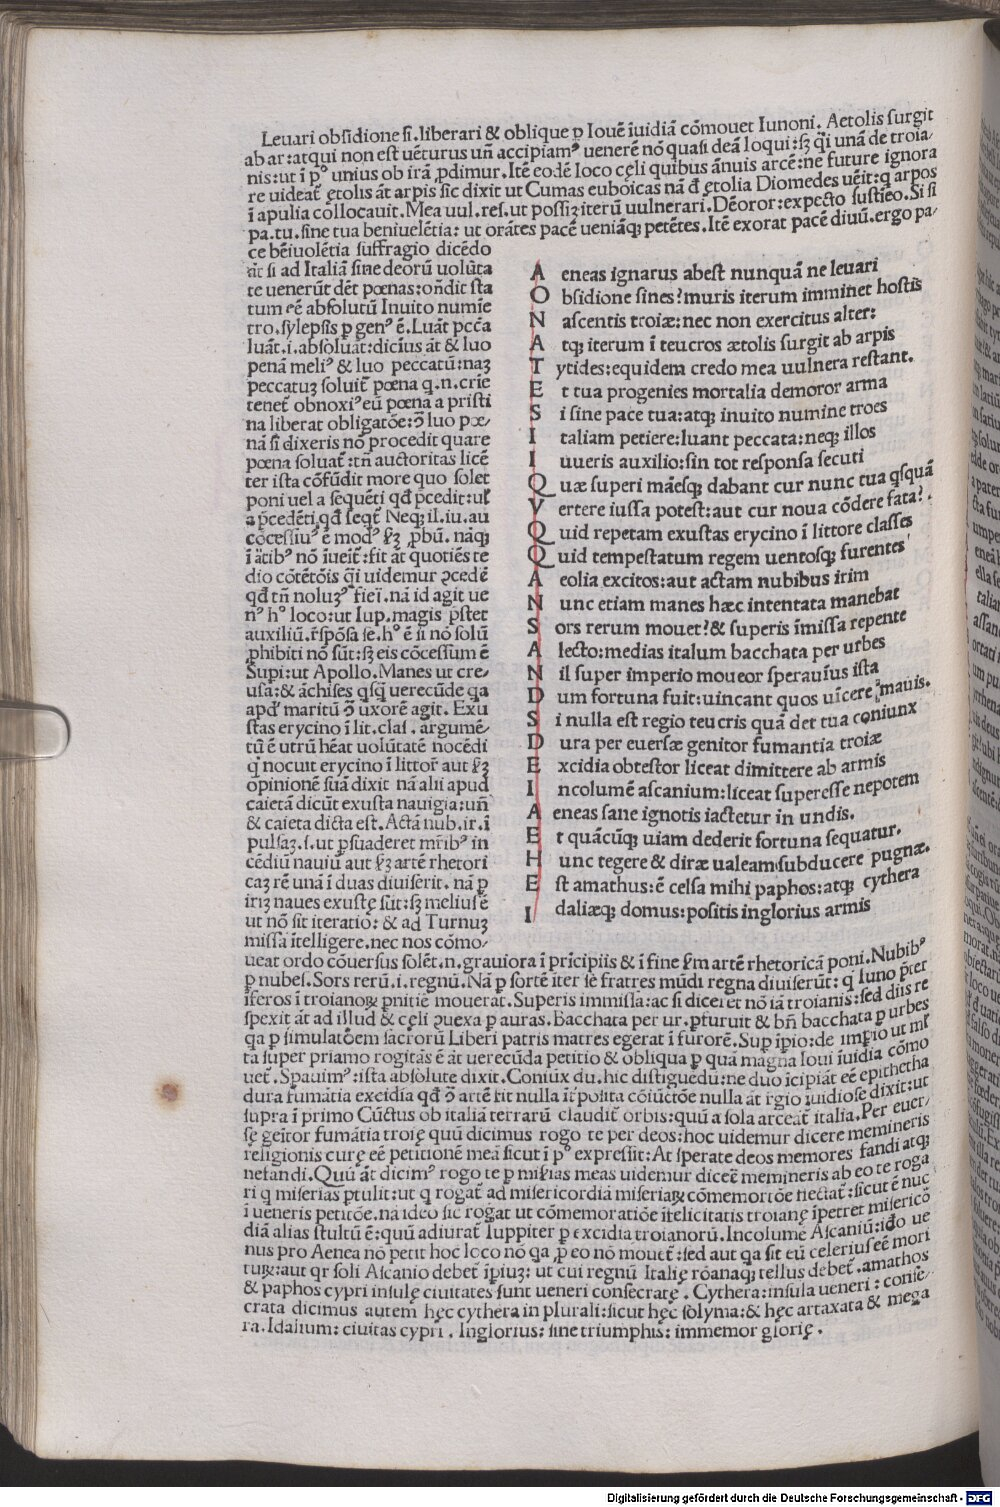 Leuari obsidione si.liberari & oblique p Iouē īuidiā cōmouet Iunoni. Aetolis surgit
ab ar:atqui non est uēturus uñ accipiamꝰ uenerē nō quasi deā loqui:sꝫ q̄i unā de troia⸗
nis:ut ī pꝰ unius ob irā ꝓdimur.Itē eodē loco cęli quibus ānuis arcē:ne future ignora
re uideat̄ ętolis āt arpis sic dixit ut Cumas euboicas nā đ ętolia Diomedes uēit:q arpos
ī apulia collocauit.Mea uul.res.ut possiꝫ iterū uulnerari.Dēoror:expecto sustīeo.Si si
pa.tu.sine tua beniuelētia: ut orātes pacē ueniāqꝫ petētes.Itē exorat pacē diuū.ergo pa⸗
ce bēiuolētia suffragio dicēdo
āt si ad Italiā sine deorū uolūta
te uenerūt dēt pœnas:oñdit sta
tum eē absolutū Inuito numīe
tro.sylepsis p genꝰ ē.Luāt pccā
luāt.i.absoluāt:dicīus āt & luo
penā meliꝰ & luo peccatū:naꝫ
peccatuꝫ soluit̄ pœna q.n.crīe
tenet̄ obnoxiꝰ eū pœna a pristi
na liberat obligatōe:ꝯ luo pœ⸗
nā si dixeris nō procedit quare
pœna soluat̄:tñ auctoritas licē
ter ista cōfūdit more quo solet
poni uel a sequēti qđ p̄cedit:ul̄
a p̄cedēti qđ seqt̄ Neqꝫ il.iu.au
cōcessiuꝰ ē modꝰ ꝉꝫ ꝓbū. nāqꝫ
ī ātibꝰ nō īueit̄:fit āt quotiēs te
dio cōtētōis q̄i uidemur ꝯcedē
qđ tñ noluꝫꝰ fieī.nā id agit ue
nꝰ hꝰ loco:ut Iup.magis p̄stet
auxiliū.r̄spōsa se.hꝰ ē si nō solū
ꝓhibiti nō sūt:sꝫ eis cōcessum ē
Supi:ut Apollo.Manes ut cre⸗
usa:& āchises qsqꝫ uerecūde qa
apđ maritū ꝯ uxorē agit. Exu
stas erycino ī lit.clas . argumē⸗
tū ē utrū hēat uolūtatē nocēdi
q nocuit erycino ī littor̄ aut ꝉꝫ
opinionē suā dixit nā alii apud
caietā dicūt exusta nauigia:uñ
& caieta dicta est. Actā nub.ir.ī
pulsaꝫ.s.ut psuaderet mr̄ibꝰ in
cēdiū nauiū aut ꝉꝫ artē rhetori
caꝫ rē unā ī duas diuiserit. nā p
iriꝫ naues exustę sūt:sꝫ meliusē
ut nō sit iteratio: & ad Turnuꝫ
missā ītelligere.nec nos cōmo⸗
A eneas ignarus abest nunquā ne leuari
O bsidione sines?muris iterum imminet hostis
N ascentis troiæ:nec non exercitus alter:
A tqꝫ iterum ī teucros ætolis surgit ab arpis
T ytides:equidem credo mea uulnera restant.
E t tua progenies mortalia demoror arma
S i sine pace tua:atqꝫ inuito numine troes
I taliam petiere:luant peccata:neqꝫ illos
I uueris auxilio:sin tot responsa secuti
Q uæ superi māesqꝫ dabant cur nunc tua qsquā
V ertere iussa potest:aut cur noua cōdere fata?.
Q uid repetam exustas erycino ī littore classes
Q uid tempestatum regem uentosqꝫ furentes
A eolia excitos:aut actam nubibus irim
N unc etiam manes hæc intentata manebat
S ors rerum mouet?& superis īmissa repente
A lecto:medias italum bacchata per urbes
N il super imperio moueor sperauīus ista
D um fortuna fuit:uincant quos uīcere mauis.
S i nulla est regio teucris quā det tua coniunx
D ura per euersæ genitor fumantia troiæ
E xcidia obtestor liceat dimittere ab armis
I ncolumē ascanium:liceat superesse nepotem
A eneas sane ignotis iactetur in undis.
E t quācūqꝫ uiam dederit fortuna sequatur.
H unc tegere & diræ ualeam:subducere pugnæ.
E st amathus:ē celsa mihi paphos:atqꝫ cythera
I daliæqꝫ domus:positis inglorius armis
ueat ordo cōuersus solēt.n.grauiora ī prīcipiis & ī fine ẜm artē rhetoricā poni.Nubibꝰ
p nubes.Sors rerū.i.regnū.Nā p sortē iter se fratres mūdi regna diuiserūt: q Iuno p̄ter
īferos ī troianoꝝ pnitiē mouerat.Superis immissā:ac si diceret nō iā troianis:sed diis re
spexit āt ad illud & cęli ꝯuexa p auras.Bacchata per ur.pturuit & bñ bacchata p urbes
qa p simulatōem sacrorū Liberi patris matres egerat ī furorē.Sup īpio:de impio ut ml̄
ta super priamo rogitās ē āt uerecūda petitio & obliqua p quā magna Ioui īuidia cōmo
uet̄.Spauimꝰ:ista absolute dixit.Coniux du.hic distīguedū:ne duo īcipiāt eē epithetha
dura fumātia excidia qđ ꝯ artē fit nulla it̄posita cōiūctōe nulla āt rgio īuidiose dixit:ut
supra ī primo Cūctus ob italiā terrarū claudit̄ orbis:quū a sola arceāt̄ italia.Per euer⸗
sę geītor fumātia troię quū dicimus rogo te per deos:hoc uidemur dicere memineris
religionis curę eē petitionē meā sicut ī pꝰ expressit: At sperate deos memores fandi atqꝫ
nefandi.Quū āt dicimꝰ rogo te p misīas meas uidemur diceē memineris ab eo te roga
ri q miserias ptulit:ut q rogat̄ ad misericordiā miseriaꝝ cōmemortōe flectat̄:sicut ē nūc
ī ueneris petitōe.nā ideo sic rogat ut cōmemoratiōe īfelicitatis troianę īpetret misericō
diā alias stultū ē:quū adiurat̄ Iuppiter p excidia troianorū.Incolume Ascaniū:ido ue
nus pro Aenea nō petit hoc loco nō qa p eo nō mouet̄:sed aut qa sit eū celeriuseē mori
tuꝝ:aut qr soli Ascanio debet̄ īpiuꝫ: ut cui regnū Italię rōanaqꝫ tellus debet̄.amathos
& paphos cypri insulę ciuitates sunt ueneri consecratę . Cythera:insula ueneri : conse⸗
crata dicimus autem hęc cythera in plurali:sicut hęc solyma:& hęc artaxata & mega
ra.Idalium: ciuitas cypri . Inglorius: sine triumphis: immemor glorię .
Digitalisierung gefördert durch die Deutsche Forschungsgemeinschaft - DFG